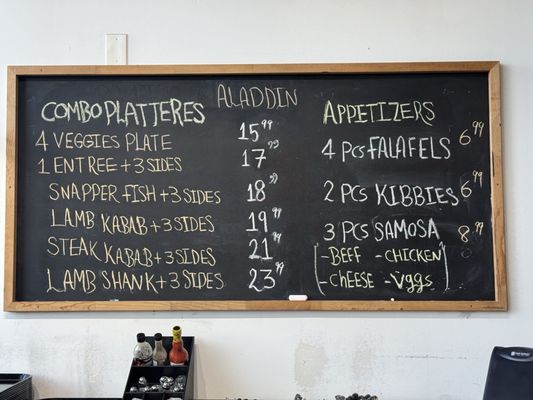 ALADDIN
COMBO PLATTERES
4 VEGGIES PLATE 15.99
1 ENTREE + 3 SIDES 17.99
SNAPPER FISH + 3 SIDES 18.99
LAMB KABAB + 3 SIDES 19.99
STEAK KABAB + 3 SIDES 21.99
LAMB SHANK + 3 SIDES 23.99
APPETIZERS
4 PCS FALAFELS 6.99
2 PCS KIBBIES 6.99
3 PCS SAMOSA 8.99
- BEEF - CHICKEN
- CHEESE - VGGS